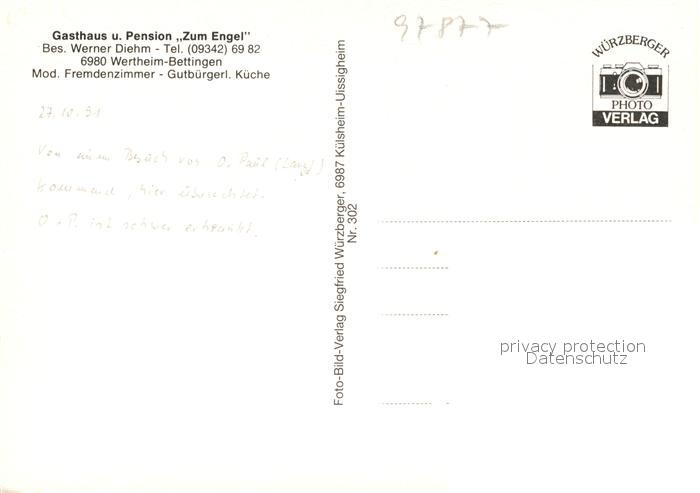 Gasthaus u. Pension „Zum Engel"
Bes. Werner Diehm - Tel. (09342) 69 82
6980 Wertheim-Bettingen
Mod. Fremdenzimmer - Gutbürgerl. Küche
27.10.91
Von einem Besuch von O. Paul
kommend, hier übernachtet.
O. P. ist schwer erkrankt.
Foto-Bild-Verlag Siegfried Würzberger, 6987 Külsheim-Uissigheim
Nr. 302
97877
WÜRZBERGER
PHOTO
VERLAG
privacy protection
Datenschutz